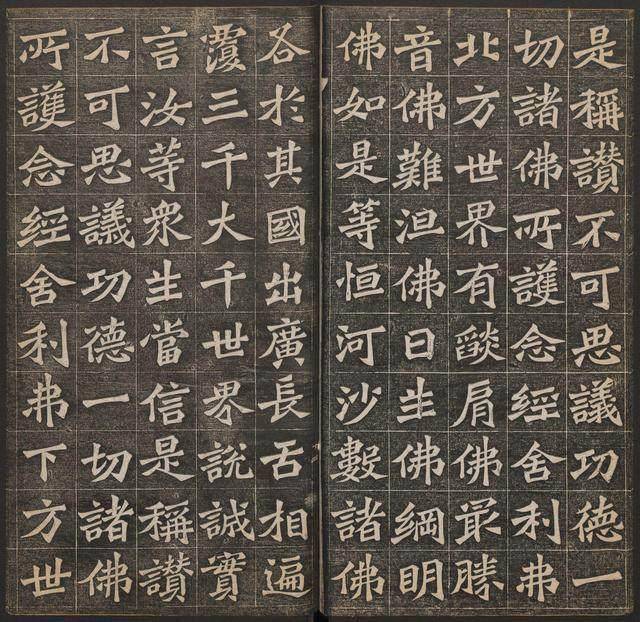 是稱讃不可思議功德一
切諸佛所護念經舍利弗
北方世界有燄肩佛最勝
音佛難沮佛日生佛綱明
佛如是等恒河沙數諸佛
各於其國出廣長舌相遍
覆三千大千世界説誠實
言汝等衆生當信是稱讃
不可思議功德一切諸佛
所護念經舍利弗下方世